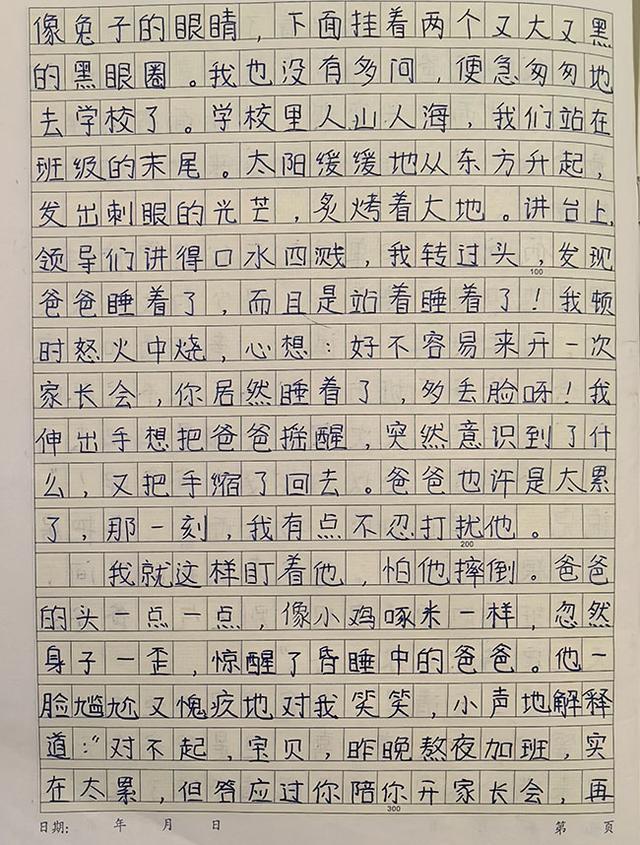 像兔子的眼睛，下面挂着两个又大又黑
的黑眼圈。我也没有多问，便急匆匆地
去学校了。学校里人山人海，我们站在
班级的末尾。太阳缓缓地从东方升起，
发出刺眼的光芒，炙烤着大地。讲台上，
领导们讲得口水四溅，我转过头，发现
100
爸爸睡着了，而且是站着睡着了！我顿
时怒火中烧，心想：好不容易来开一次
家长会，你居然睡着了，多丢脸呀！我
伸出手想把爸爸摇醒，突然意识到了什
么，又把手缩了回去。爸爸也许是太累
了，那一刻，我有点不忍打扰他。
200
我就这样盯着他，怕他摔倒。爸爸
的头一点一点，像小鸡啄米一样，忽然
身子一歪，惊醒了昏睡中的爸爸。他一
脸尴尬又愧疚地对我笑笑，小声地解释
道：“对不起，宝贝，昨晚熬夜加班，实
在太累，但答应过你陪你开家长会，再
300
日期: 年 月 日 第 页